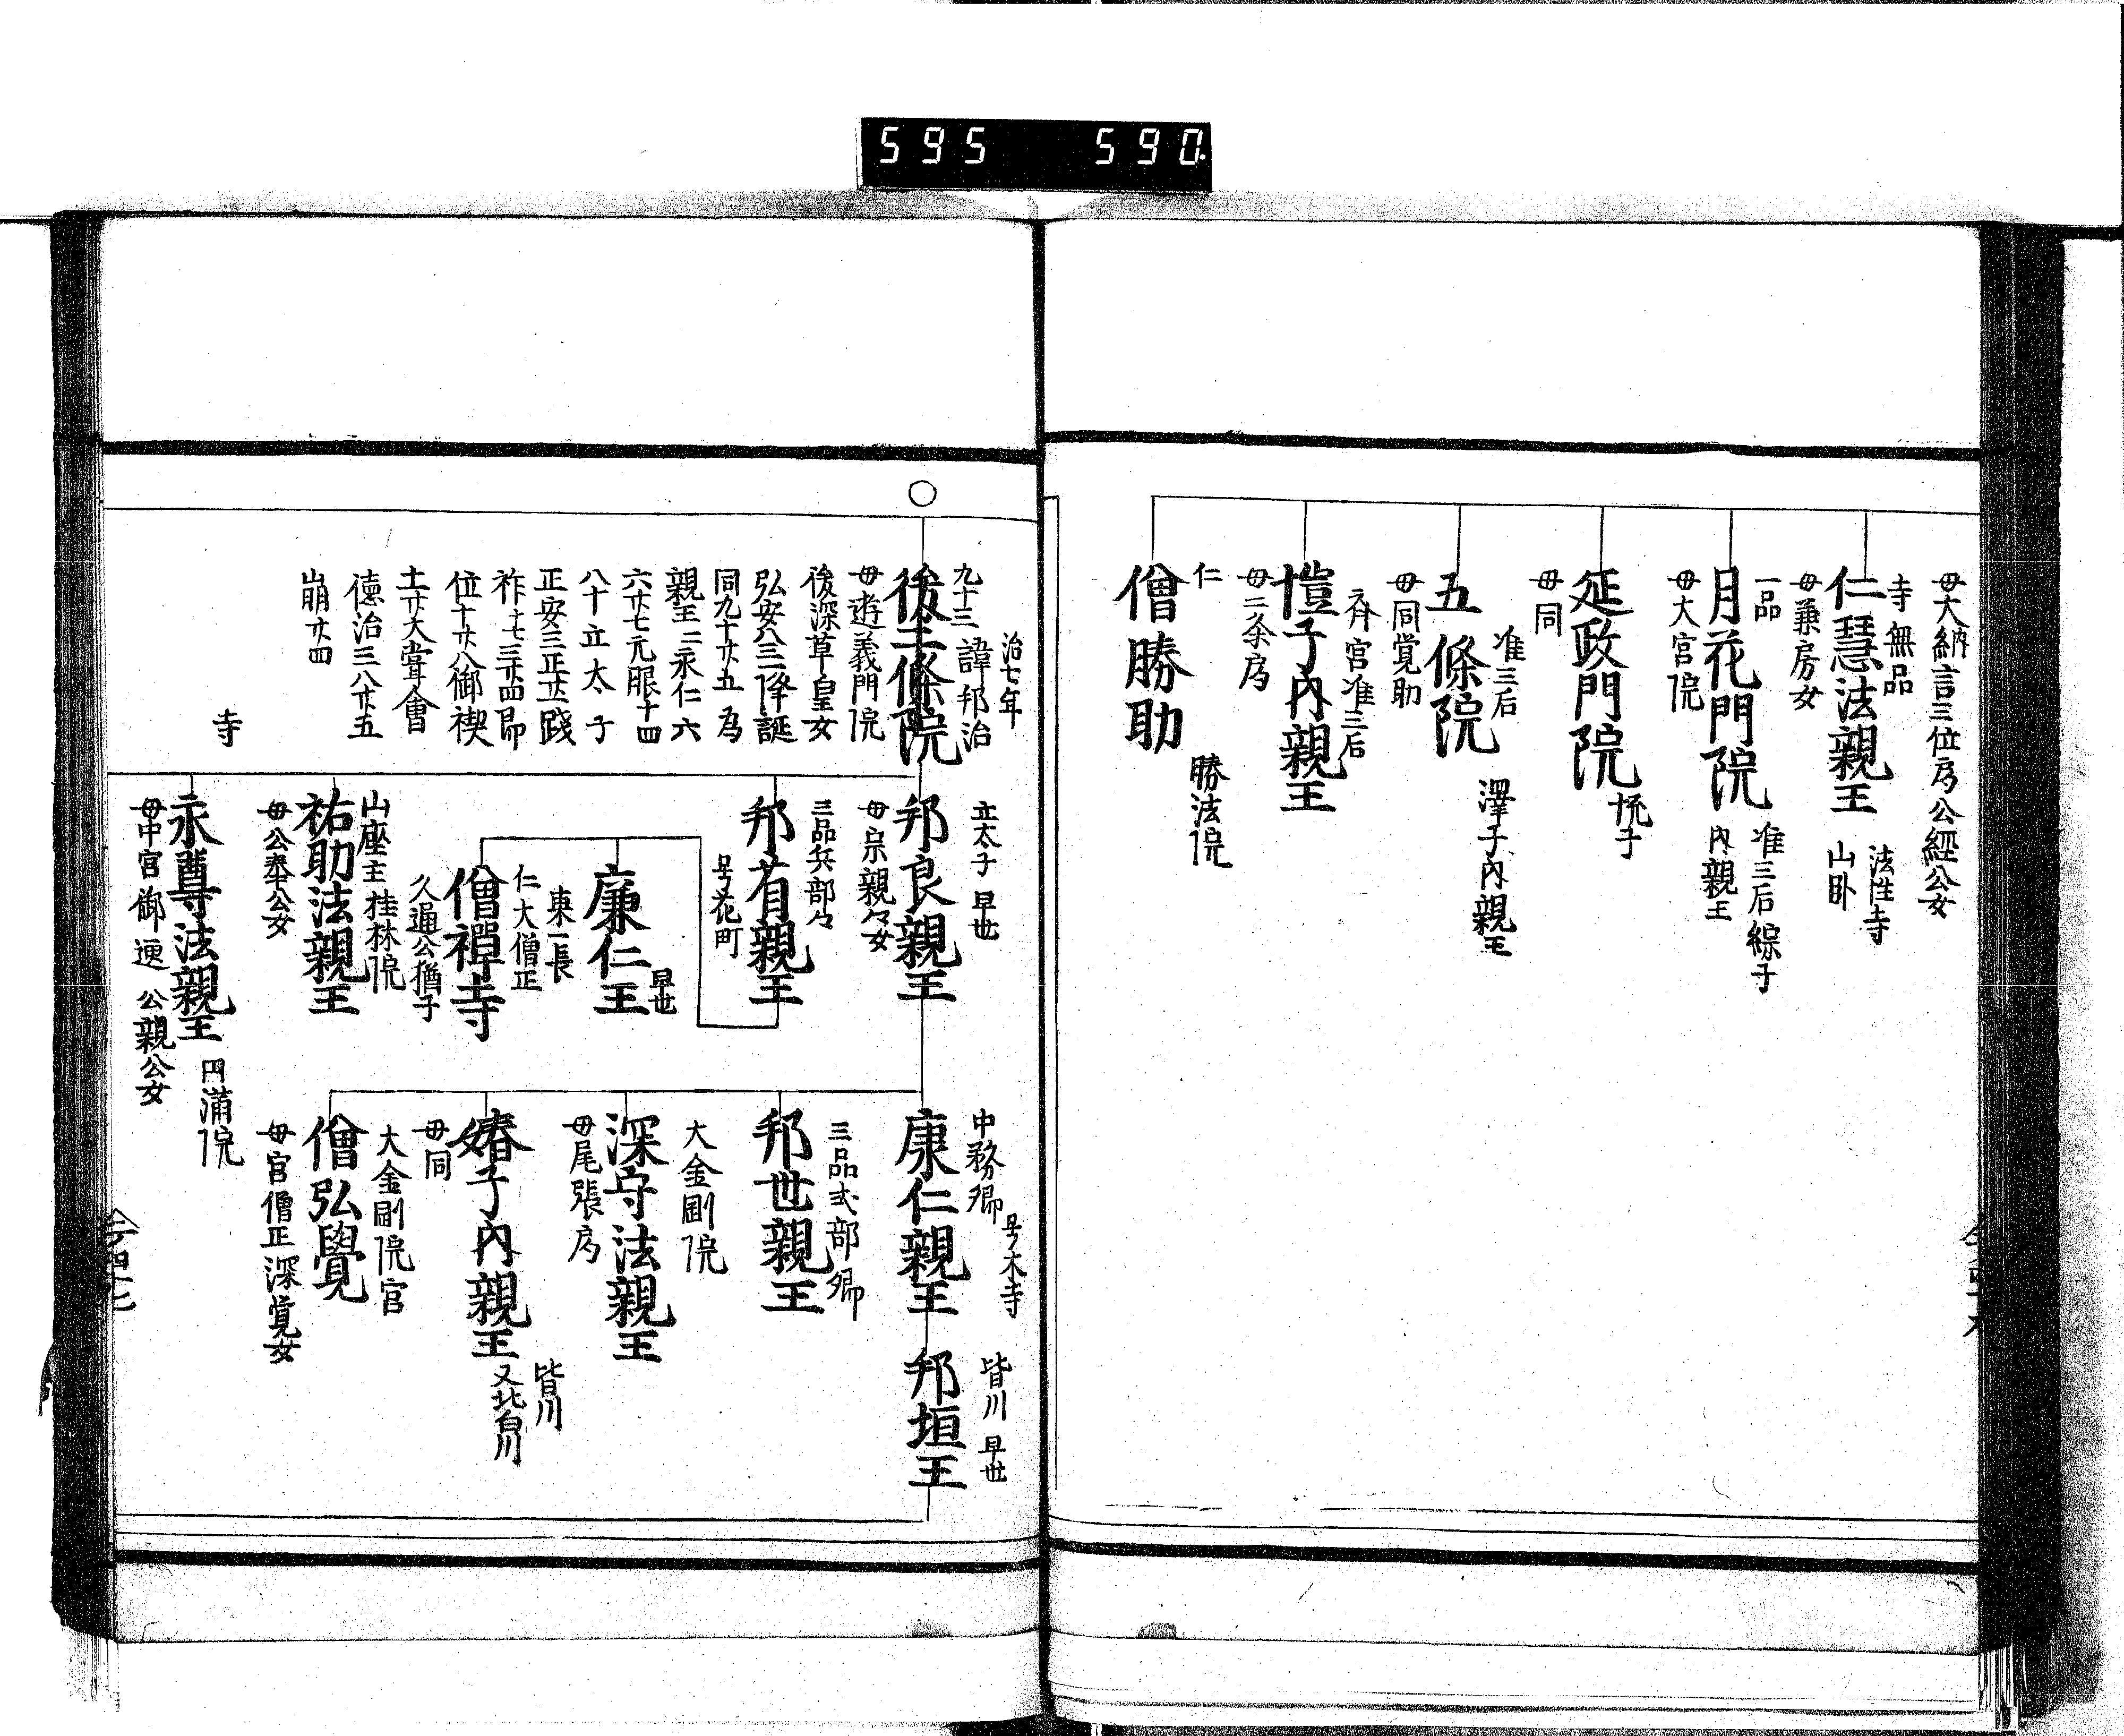 595 590
母大納言三位局公經公女
寺無品
仁慧法親王
法性寺
山卧
母兼房女
一品
月花門院
准三后綜子
內親王
母大宮院
延政門院
悅子
母同
准三后
五條院
澤子內親王
母同覚助
斉宮准三后
愷子內親王
母二条局
仁
僧勝助
勝法院
治七年
九十三 諱邦治
後二條院
母遊義門院
後深草皇女
弘安八三降誕
同九十廿五為
親王二永仁六
六廿七元服十四
八十立太子
正安三正廿二踐
祚十七三廿四即
位十廿八御禊
土廿大嘗會
德治三八廿五
崩廿四
立太子 早世
邦良親王
母宗親々女
三品兵部々
邦省親王
号花町
早世
廉仁王
東一長
仁大僧正
僧禅寺
久通公猶子
山座主 桂林院
祐助法親王
母公泰公女
寺
永尊法親王
円満院
母中宮御匣 公親公女
中務卿
号木寺
康仁親王
皆川 早世
邦垣王
三品式部卿
邦世親王
大金剛院
深守法親王
母尾張局
媋子內親王
皆川
又北白川
母同
大金剛院官
僧弘覺
母官僧正深覚女